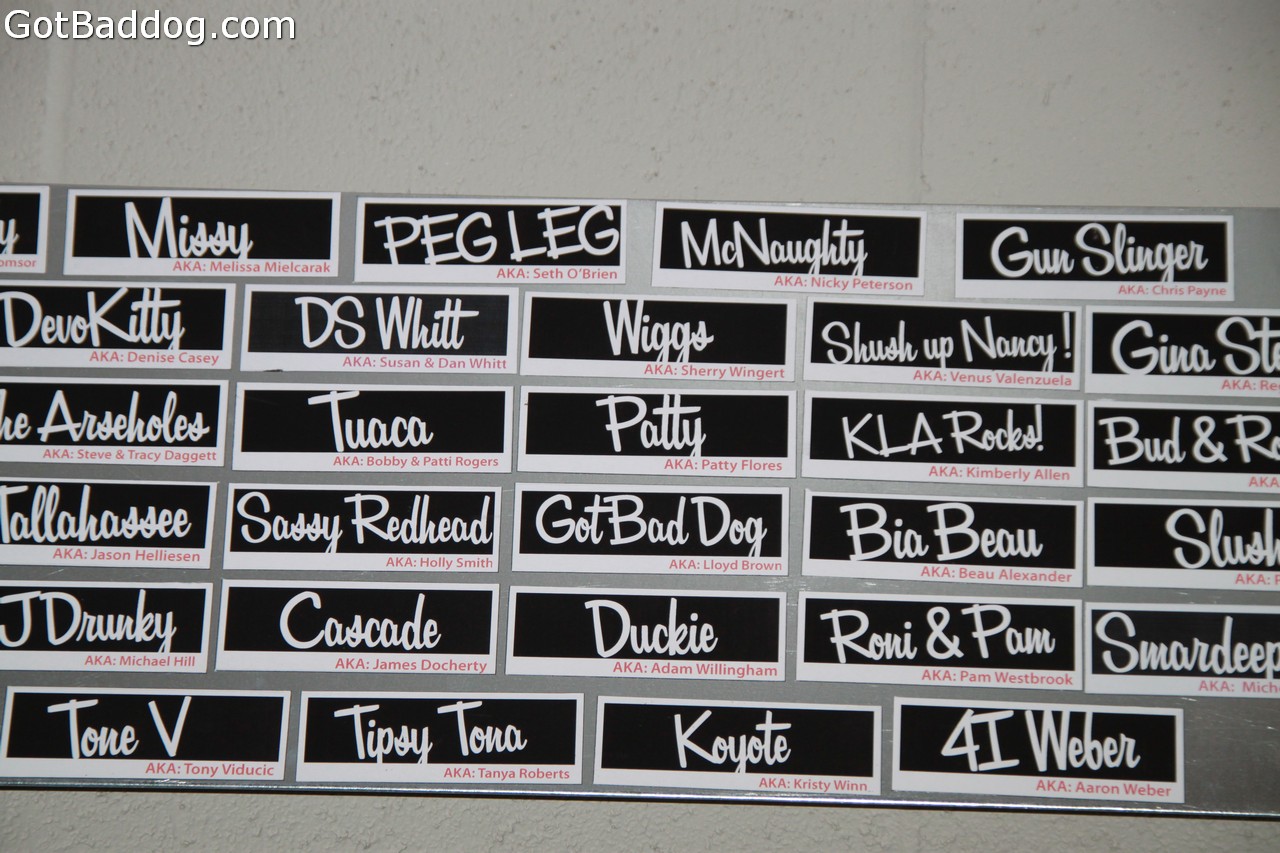 GotBaddog.com
Missy
AKA: Melissa Mielcarak
PEG LEG
AKA: Seth O'Brien
McNaughty
AKA: Nicky Peterson
Gun Slinger
AKA: Chris Payne
DevoKitty
AKA: Denise Casey
DS Whitt
AKA: Susan & Dan Whitt
Wiggs
AKA: Sherry Wingert
Shush up Nancy!
AKA: Venus Valenzuela
Gina
AKA:
Arseholes
AKA: Steve & Tracy Daggett
Tuaca
AKA: Bobby & Patti Rogers
Patty
AKA: Patty Flores
KLA Rocks!
AKA: Kimberly Allen
Bud &
AKA
Tallahassee
AKA: Jason Helliesen
Sassy Redhead
AKA: Holly Smith
GotBad Dog
AKA: Lloyd Brown
Bia Beau
AKA: Beau Alexander
AKA:
J Drunky
AKA: Michael Hill
Cascade
AKA: James Docherty
Duckie
AKA: Adam Willingham
Roni & Pam
AKA: Pam Westbrook
Smardeep
AKA:
Tone V
AKA: Tony Viducic
Tipsy Tona
AKA: Tanya Roberts
Koyote
AKA: Kristy Winn
4I Weber
AKA: Aaron Weber